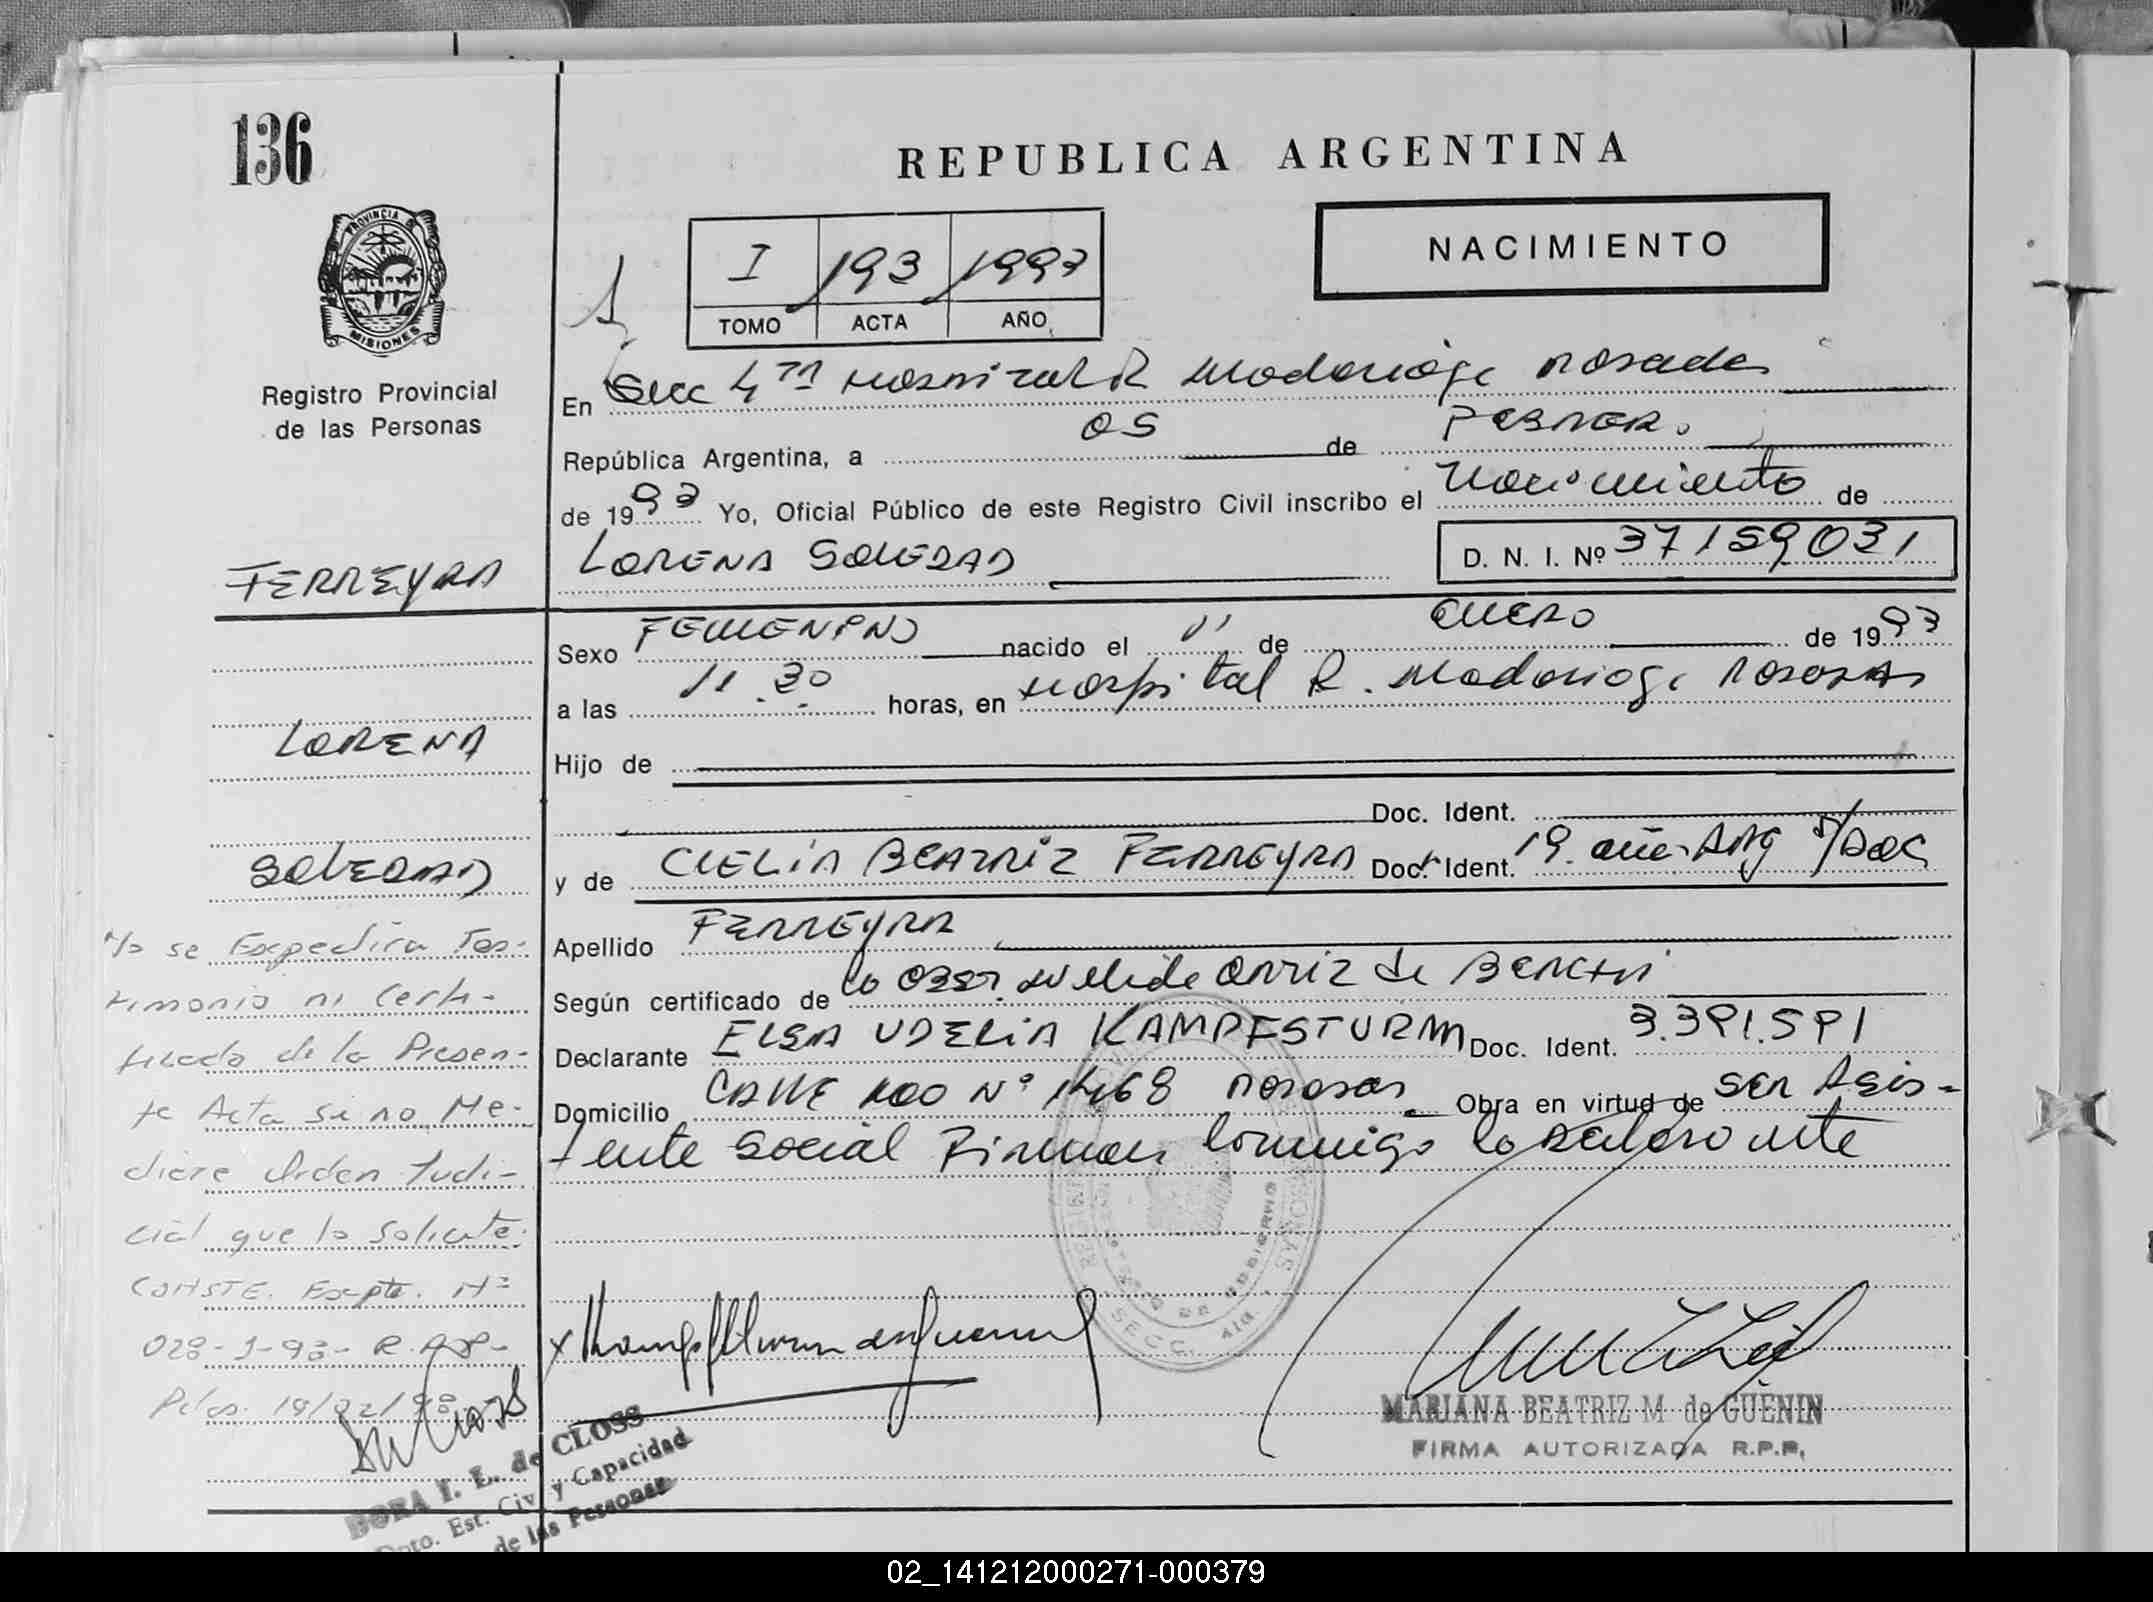 136
REPUBLICA ARGENTINA
PROVINCIA DE
MISIONES
NACIMIENTO
I 193 1993
TOMO ACTA AÑO
Registro Provincial
de las Personas
En Secc 4ta Hospital R Madariaga Posadas
República Argentina, a 05 de Febrer.
de 1993 Yo, Oficial Público de este Registro Civil inscribo el Nacimiento de
FERREYRA
LORENA SOLEDAD D. N. I. Nº 37159031
Sexo FEMENINO nacido el 11 de ENERO de 1993
a las 11.30 horas, en Hospital R. Madariaga Posadas
LORENA
Hijo de
Doc. Ident.
SOLEDAD
y de CLELIA BEATRIZ FERREYRA Doc. Ident. 19. años Arg S/Doc
Apellido FERREYRA
Según certificado de la Obst. Ortiz de
Declarante ELSA UDELIA KAMPFSTURM Doc. Ident. 3.391.591
Domicilio CALLE 100 Nº 1468 Posadas. Obra en virtud de SER Asis-
tente Social Firman conmigo la declarante
No se Expedira Tes-
timonio ni Certi-
ficado de la Presen-
te Acta si no Me-
diare Orden Judi-
cial que lo solicite.
CONSTE. Expte. Nº
028-J-93- R.
Pdas. 19/02/93
DORA I. E. de CLOSS
Dpto. Est. Civ. y Capacidad
de las Personas
SECC. 4ta.
MARIANA BEATRIZ M. de GUENIN
FIRMA AUTORIZADA R.P.P.
02_141212000271-000379